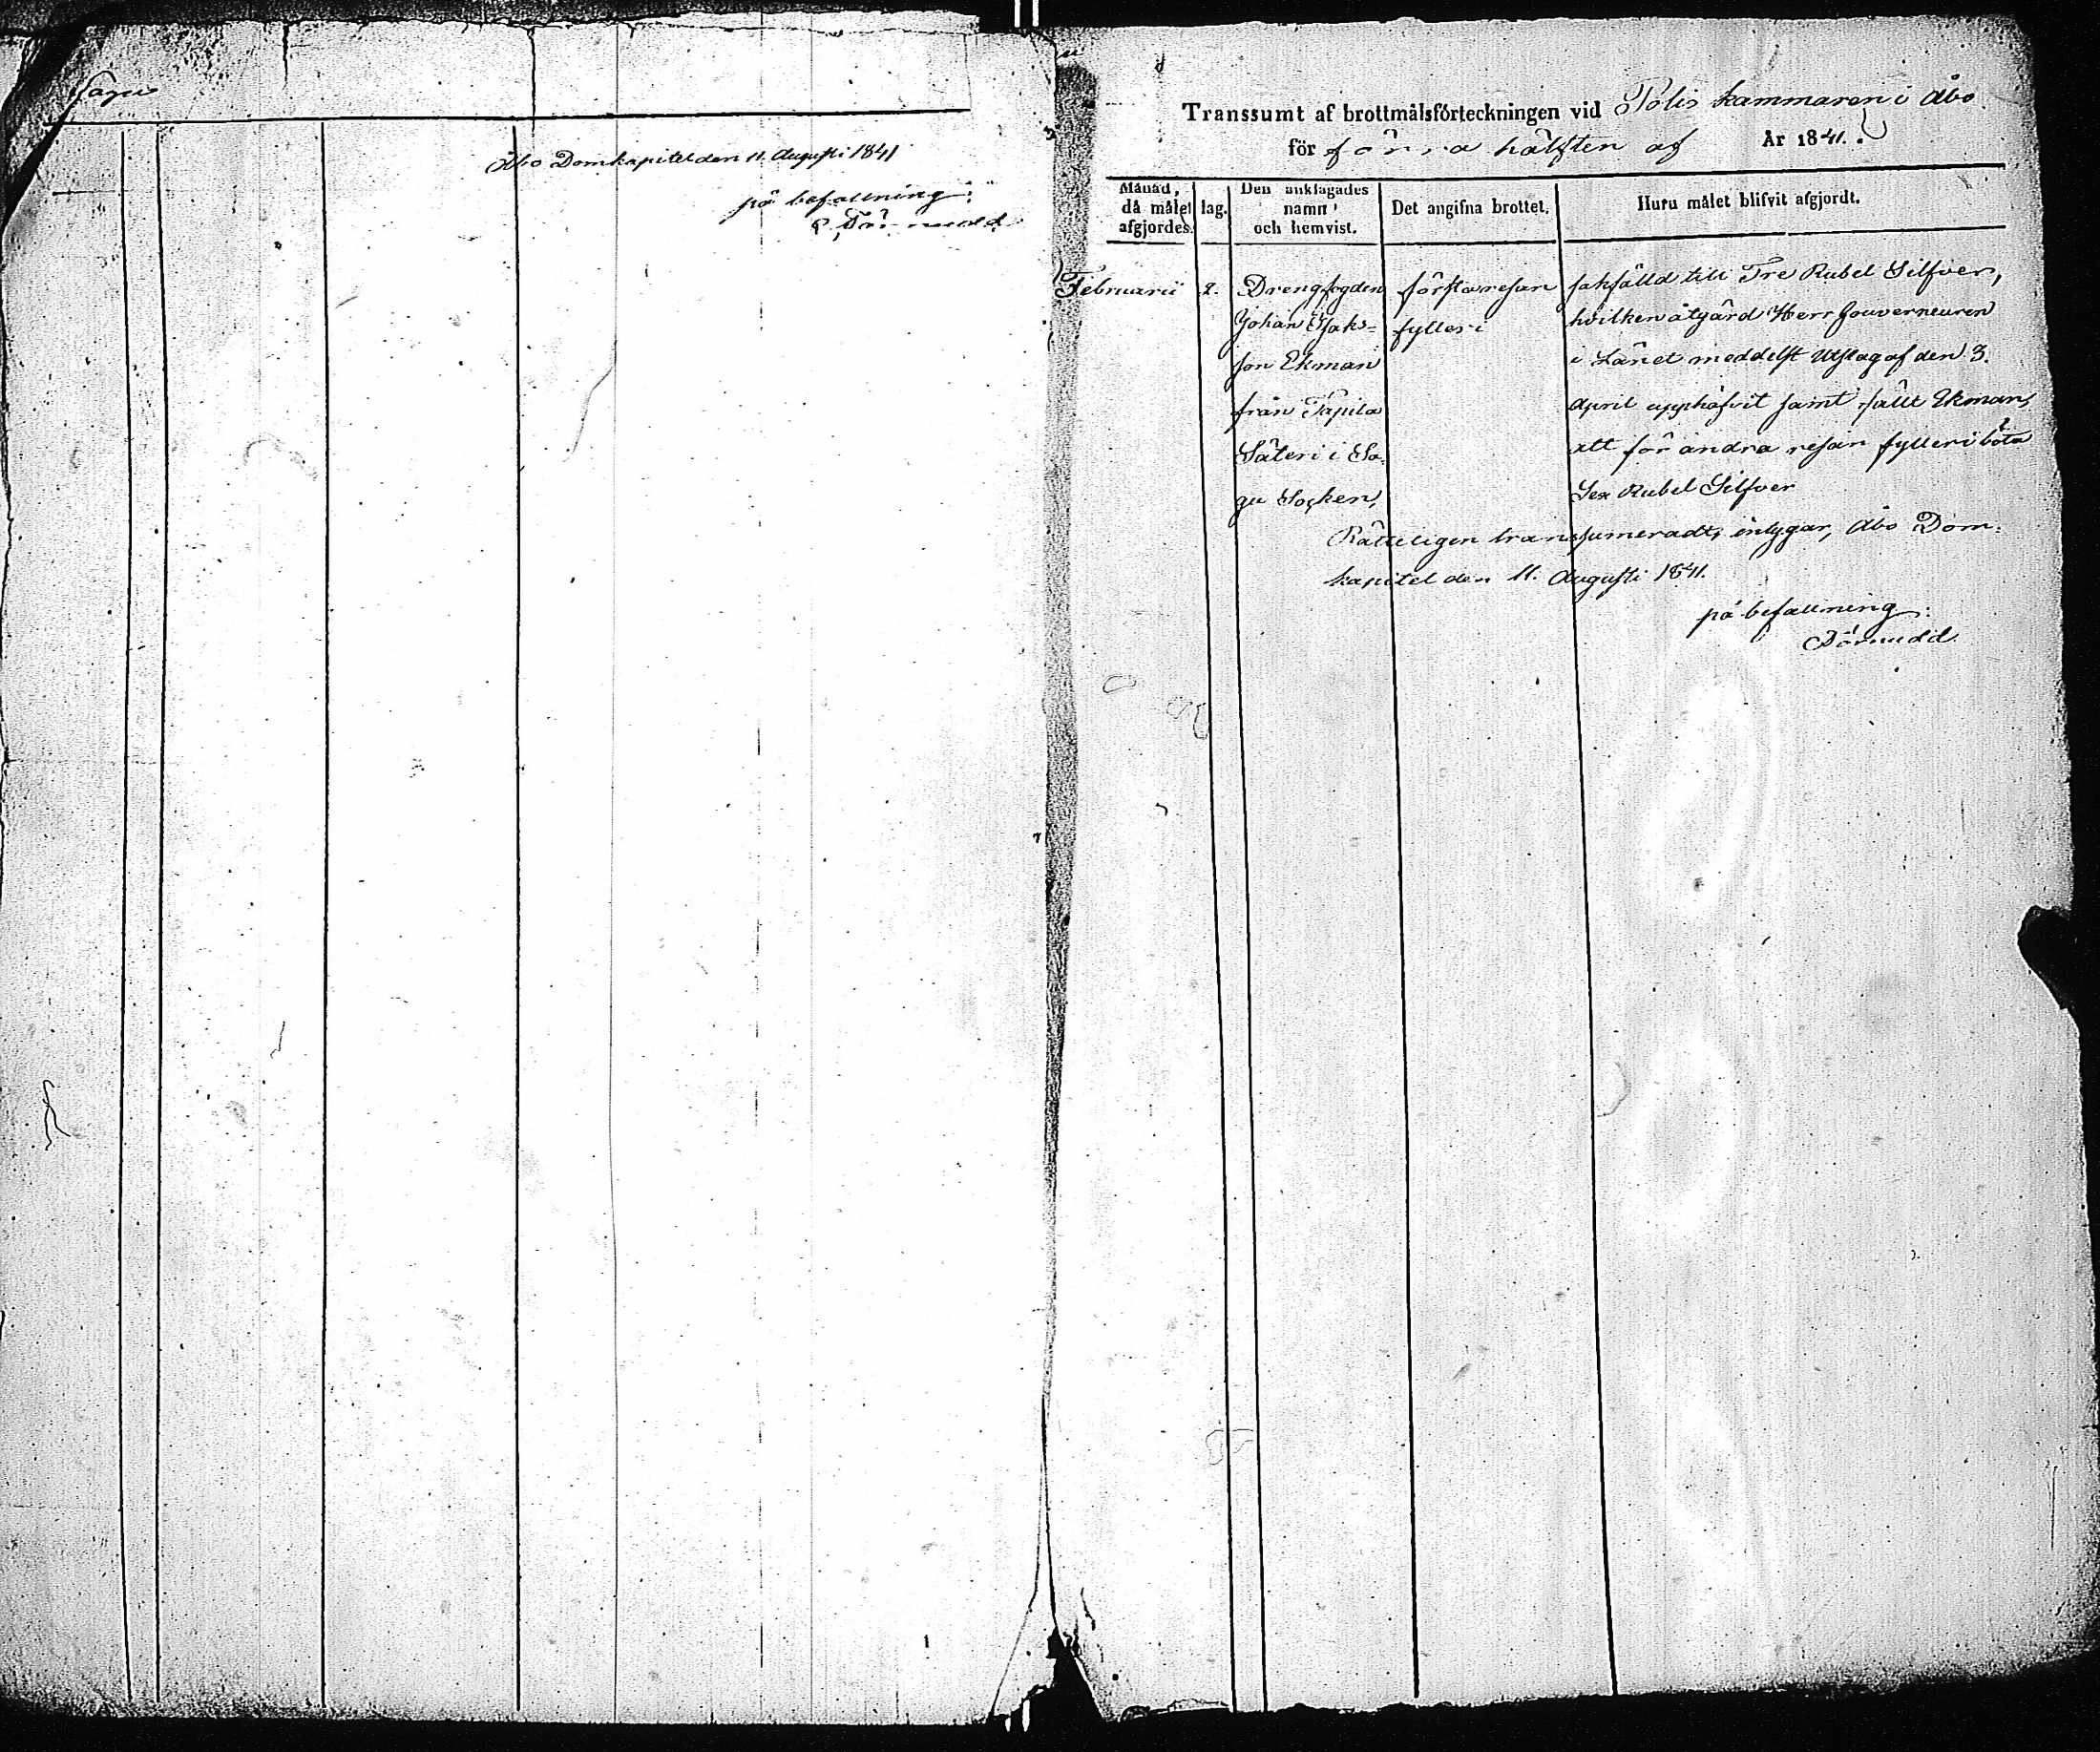 Sagu
Åbo Domkapitel den 11. Augusti 1841
på befallning:
Transsumt af brottmålsförteckningen vid Polis kammaren i Åbo
för förra hälften af År 1841.
Månad, då målet afgjordes.
Dag.
Den anklagades namn och hemvist.
Det angifna brottet.
Huru målet blifvit afgjordt.
Februarii 2. Drengfogden första resan sakfälld till Tre Rubel Silfver,
Johan Isaks- fylleri hvilken åtgärd Herr Gouverneuren
son Ekman i Länet meddelst Utslag af den 3.
från Tapila April upphäfvit samt fällt Ekman,
Säteri i Sa- att för andra resan fylleri böta
gu Socken, Sex Rubel Silfver
Rätteligen transsumeradt, intygar, Åbo Dom-
kapitel den 11. Augusti 1841.
på befallning:
Törnudd